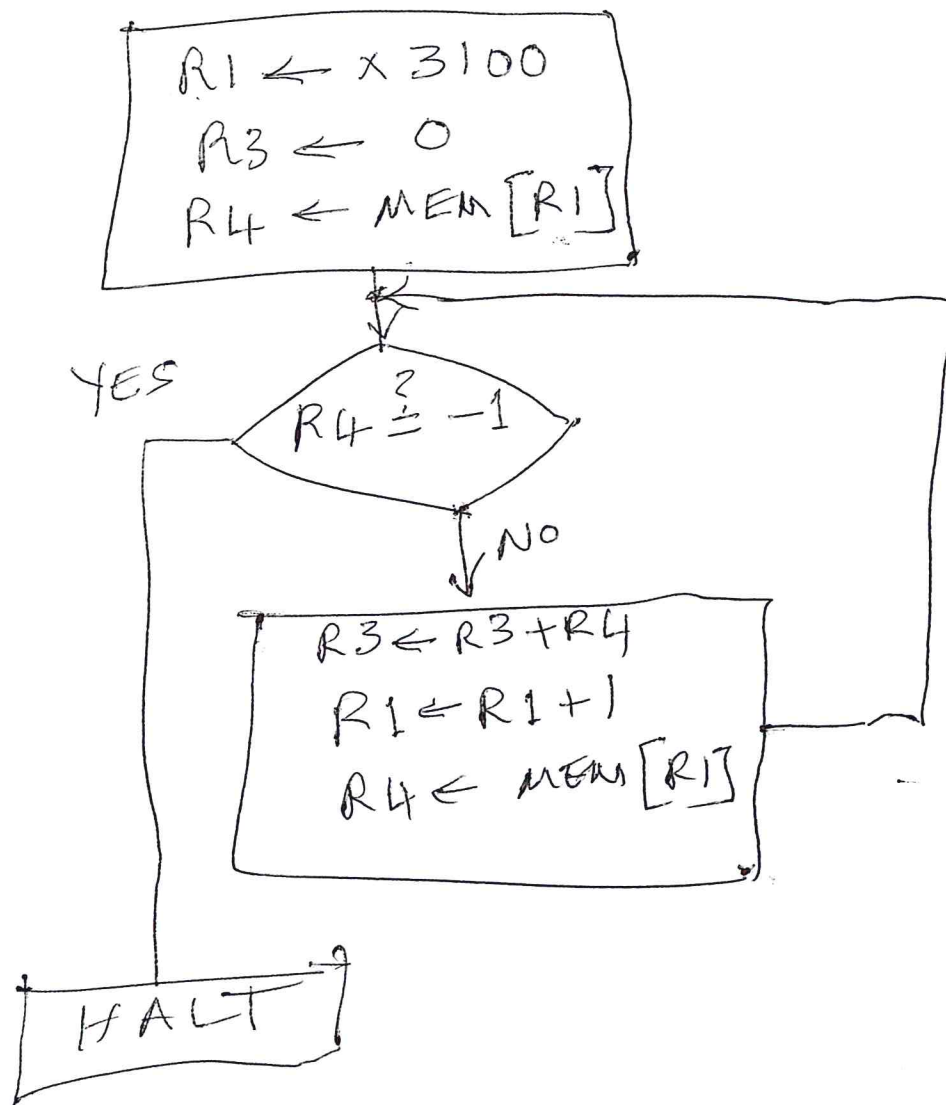 R1 ← x 3100
R3 ← 0
R4 ← MEM [R1]
YES
R4 ≟ -1
NO
R3 ← R3 + R4
R1 ← R1 + 1
R4 ← MEM [R1]
HALT